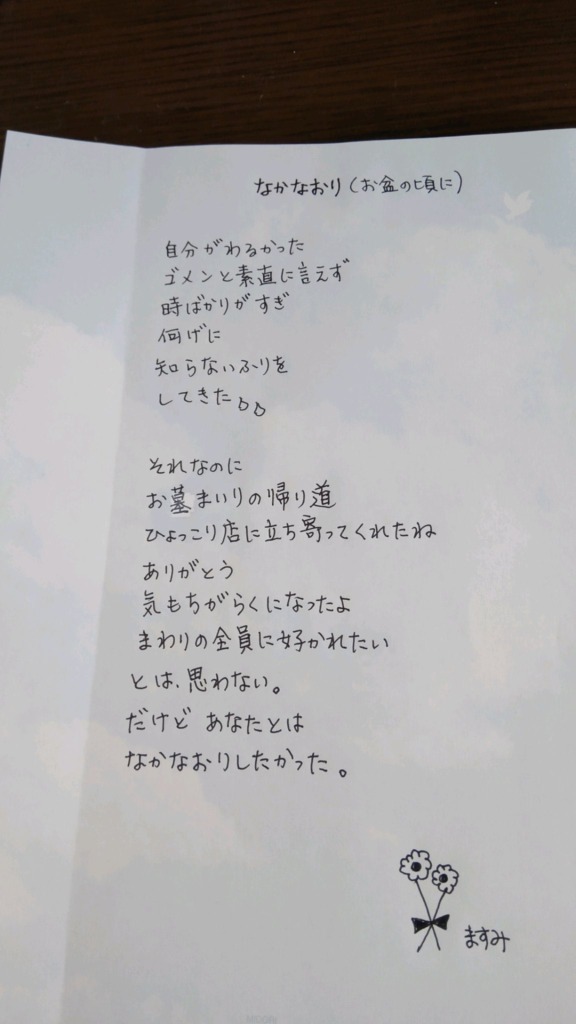 なかなおり(お盆の頃に)
自分がわるかった
ゴメンと素直に言えず
時ばかりがすぎ
何げに
知らないふりを
してきた。。
それなのに
お墓まいりの帰り道
ひょっこり店に立ち寄ってくれたね
ありがとう
気もちがらくになったよ
まわりの全員に好かれたい
とは、思わない。
だけど あなたとは
なかなおりしたかった。
ますみ